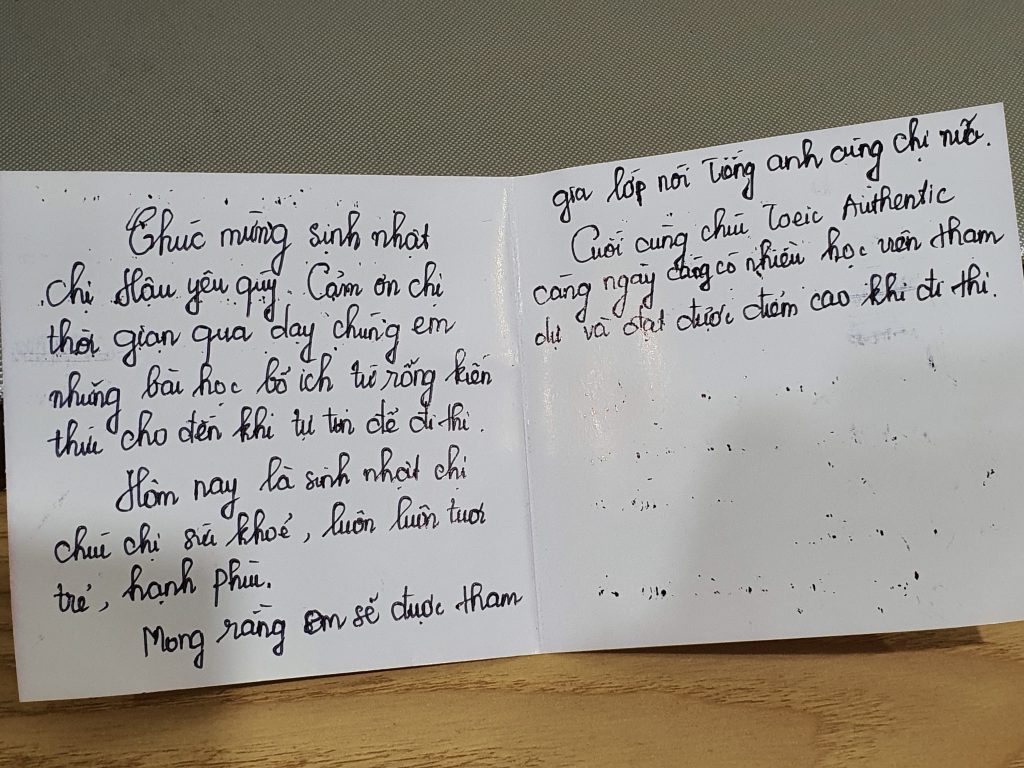 Chúc mừng sinh nhật
chị Hậu yêu quý. Cảm ơn chị
thời gian qua dạy chúng em
những bài học bổ ích từ rỗng kiến
thức cho đến khi tự tin để đi thi.
Hôm nay là sinh nhật chị
chúc chị sức khoẻ, luôn luôn tươi
trẻ, hạnh phúc.
Mong rằng em sẽ được tham
gia lớp nói tiếng anh cùng chị nữa.
Cuối cùng chúc Toeic Authentic
càng ngày càng có nhiều học viên tham
dự và đạt được điểm cao khi đi thi.